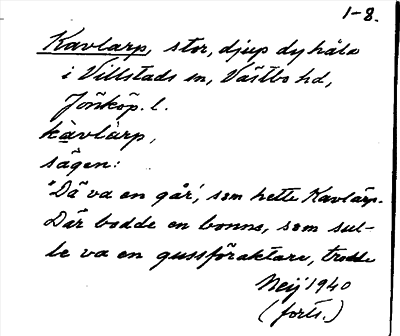 1-8.
Kavlarp, stor, djup dyhåla
i Villstads sn, Västbo hd,
Jönköp. l.
kàvlàrp,
sägen:
"Dä va en går', som hette Kavlärp.
Där bodde en bonne, som sul-
le va en gussföraktare, trodde
Neij 1940
(forts.)